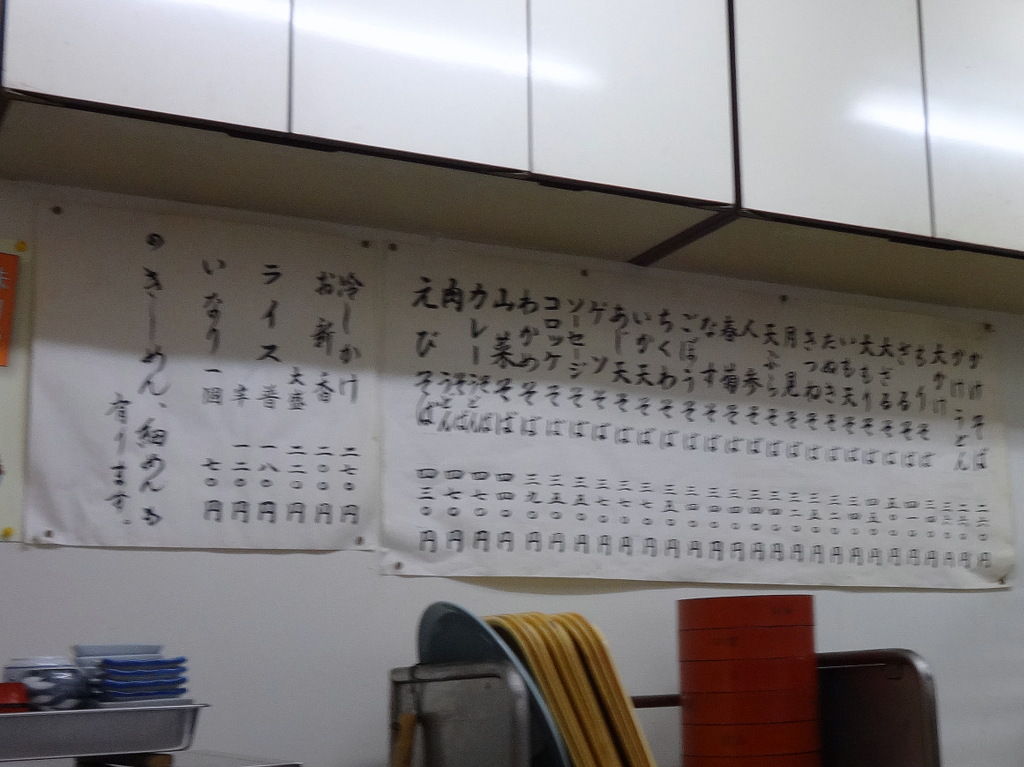 かけそば
かけうどん
大かけ
もりそば
ざるそば
大ざるそば
大もりそば
いも天そば
たぬきそば
きつねそば
月見そば
天ぷらそば 三四〇円
人参そば 三四〇円
春菊そば 三四〇円
なすそば 三四〇円
ごぼうそば 三四〇円
ちくわそば 三五〇円
いか天そば 三七〇円
あじ天そば 三七〇円
ゲソそば 三七〇円
ソーセージそば 三五〇円
コロッケそば 三五〇円
わかめそば 三九〇円
山菜そば 四四〇円
カレーそばうどん 四七〇円
肉そばうどん 四七〇円
えびそば 四三〇円
冷しかけ 二七〇円
お新香 二〇〇円
大盛 二二〇円
ライス 普 一八〇円
半 一二〇円
いなり一個 七〇円
◎きしめん、細めんも
有ります。